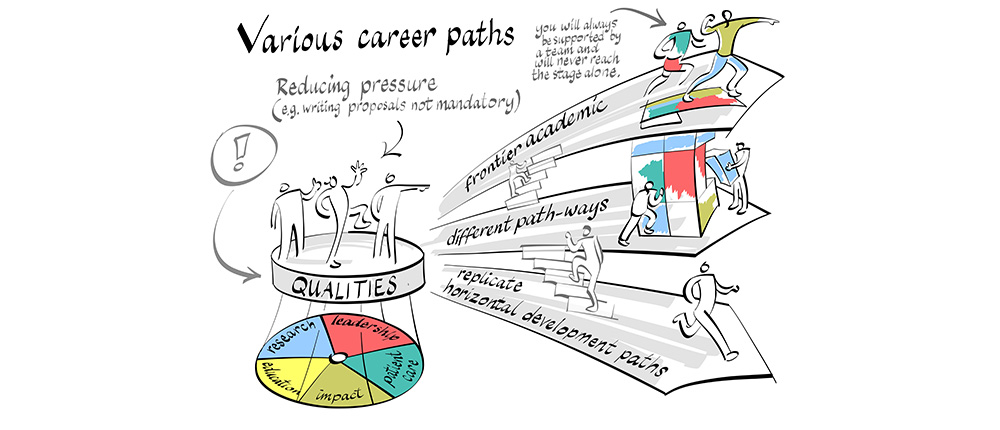 Various career paths
you will always
be supported by
a team and
will never reach
the stage alone.
Reducing pressure
(e.g. writing proposals not mandatory)
!
frontier academic
different path-ways
replicate
horizontal development paths
QUALITIES
research
leadership
patient
care
impact
education